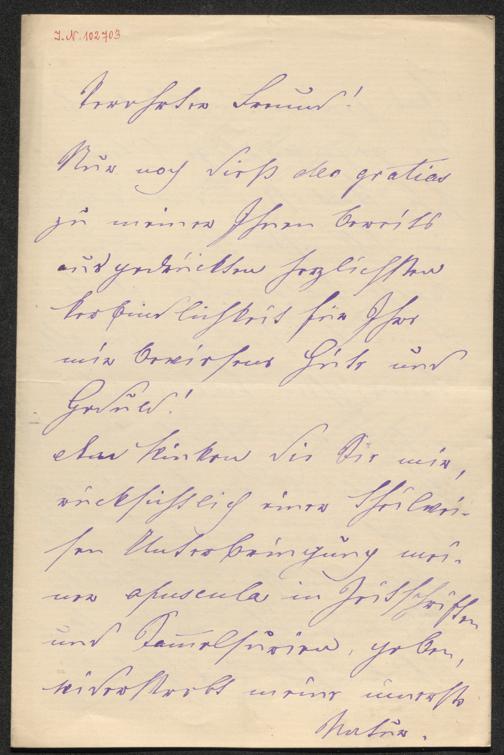 I.N. 102703
Verehrter Freund!
Nur noch dieß deo gratias
zu meiner Ihnen bereits
ausgedrückten herzlichsten
Verbindlichkeit für Ihre
mir bewiesene Güte und
Geduld!
Den Winken die Sie mir,
rücksichtlich einer theilwei-
sen Unterbringung mei-
ner opuscula in Zeitschriften
und Samelsurien, geben,
widerstrebt meine innerste
Natur.